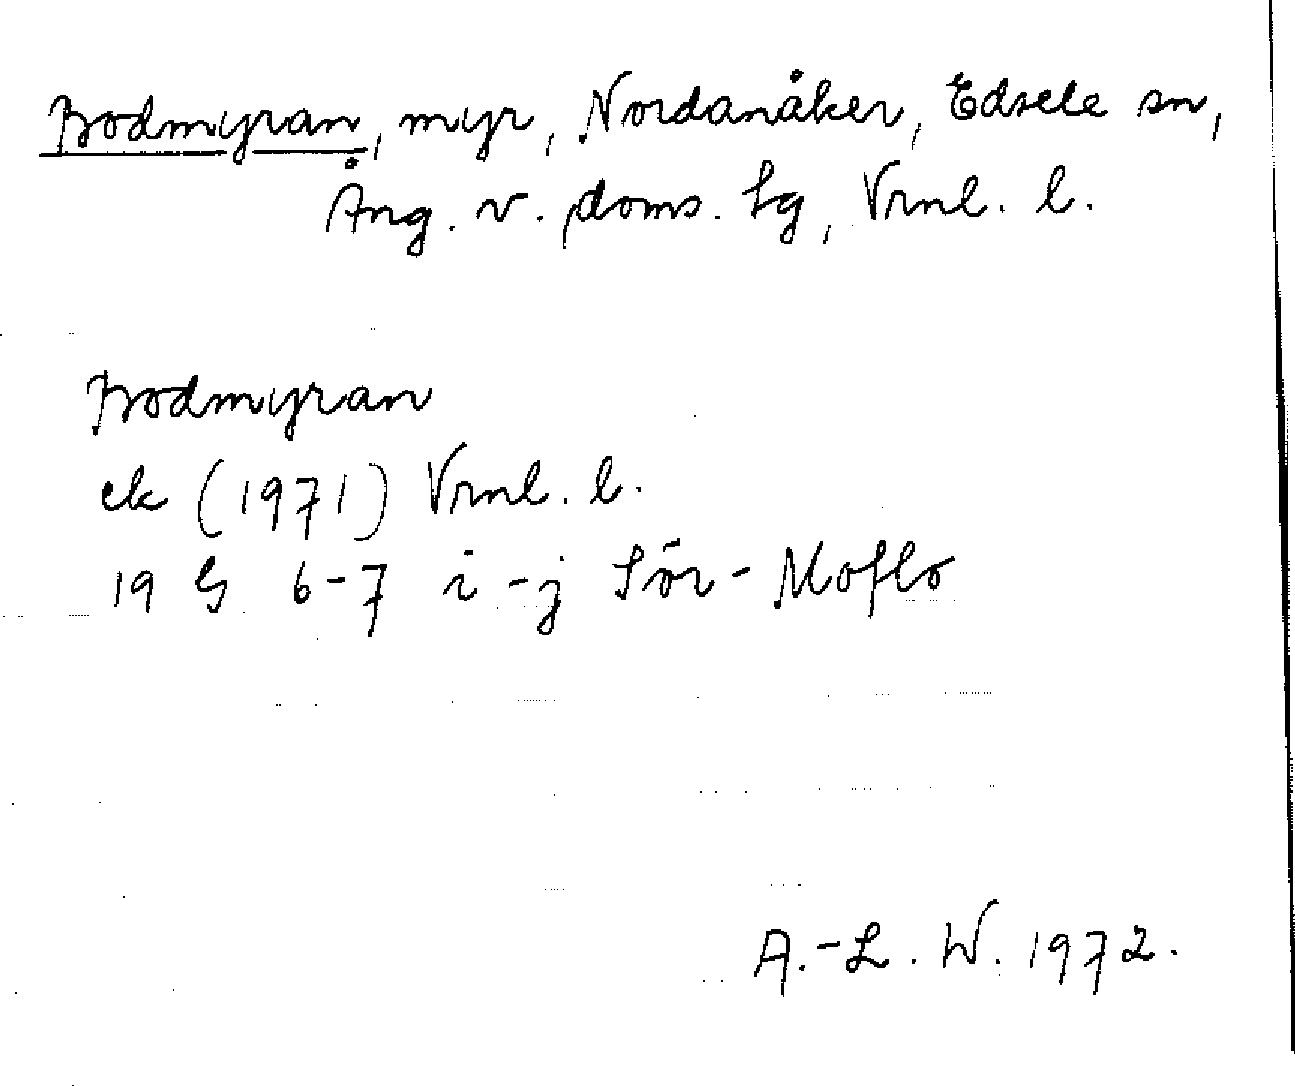 Bodmyran, myr, Nordanåker, Edsele sn,
Ång. v. doms. lg, Vrnl. l.
Bodmyran
ek (1971) Vrnl. l.
19 G 6-7 i-j Sör-Moflo
A.-L. W. 1972.